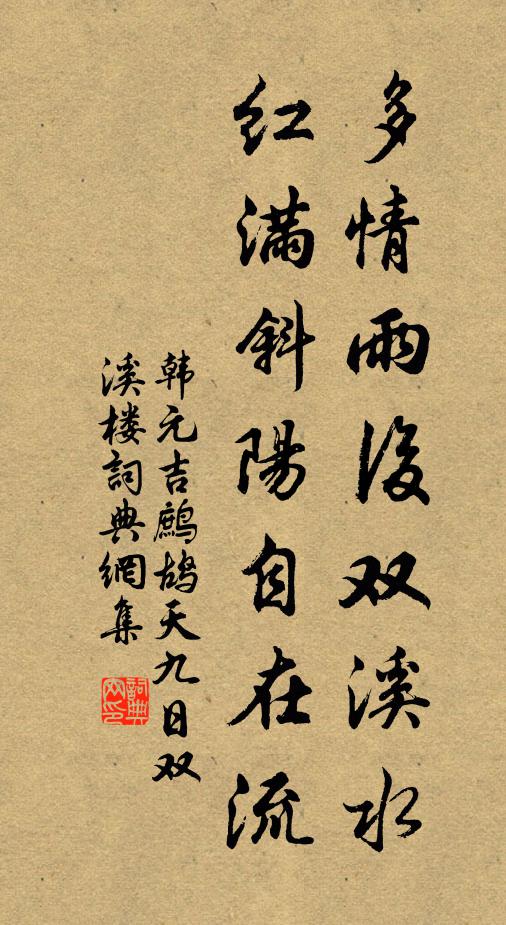 多情雨後双溪水
红满斜陽自在流
韩元吉鷓鴣天九日双
溪楼詞典網集
詞典
网印